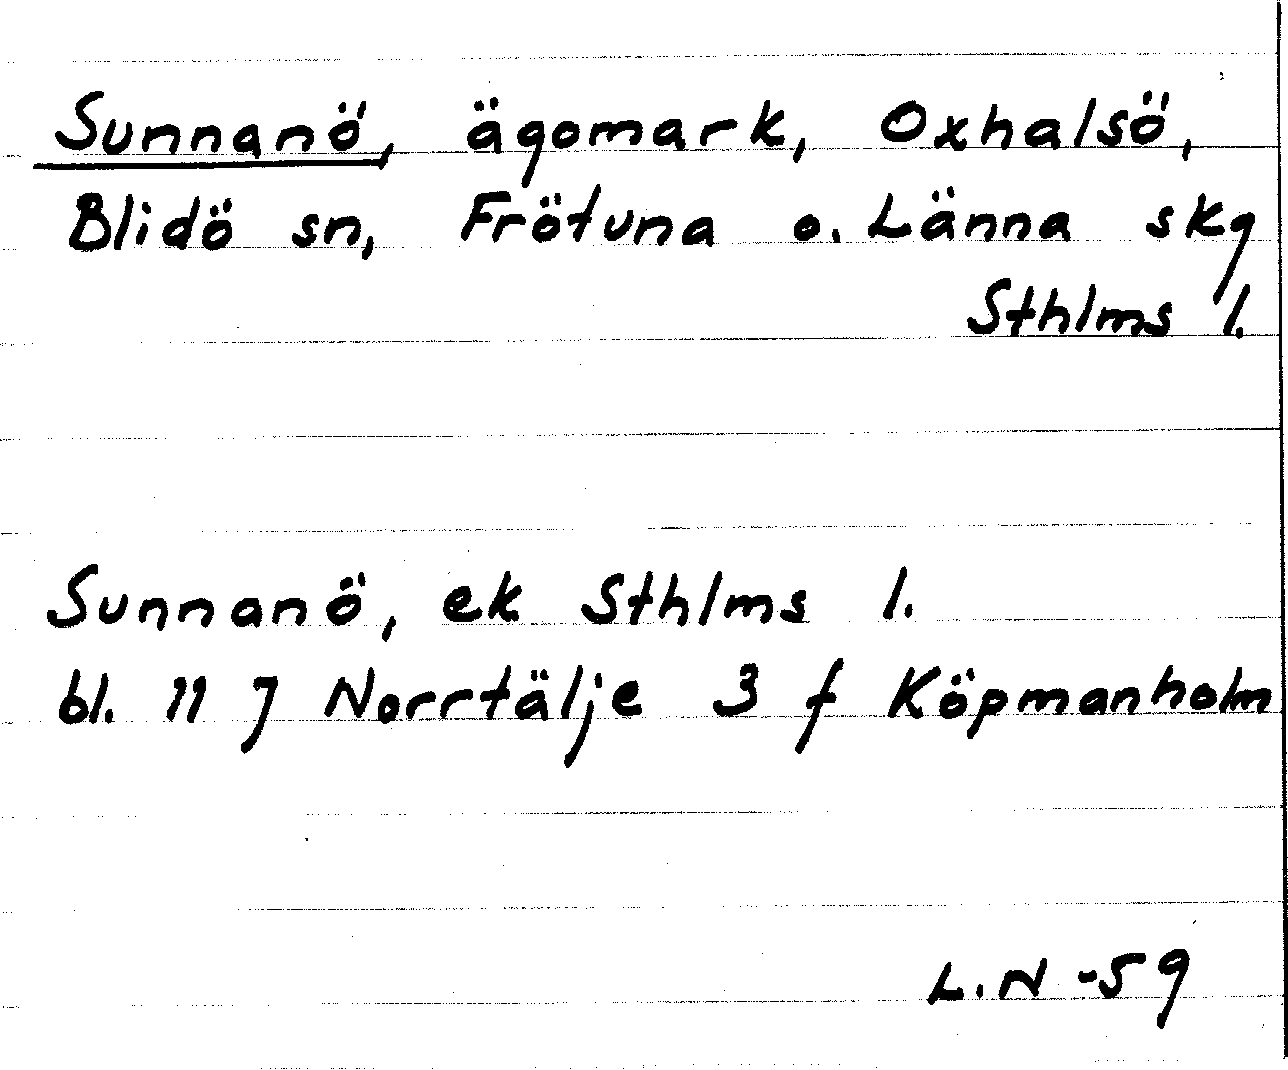 Sunnanö, ägomark, Oxhalsö,
Blidö sn, Frötuna o. Länna skg
Sthlms l.
Sunnanö, ek Sthlms l.
bl. 11 J Norrtälje 3 f Köpmanholm
L.N -59